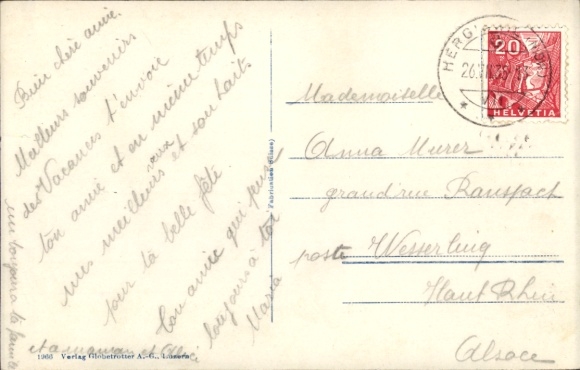 Bien chère amie.
Meilleurs souvenirs
des Vacances t'envoie
ton amie et en même temps
mes meilleurs voeux et souhaits.
pour ta belle fête
ton amie qui pense
toujours à toi
Maria
un toujours la
et a maman et
HERGISWIL
26.VII.35
20
HELVETIA
Mademoiselle
Anna Murer
grand'rue Ranspach
poste Wesserling
Haut Rhin
Alsace
Fabrication Suisse
1966 Verlag Globetrotter A.-G., Luzern